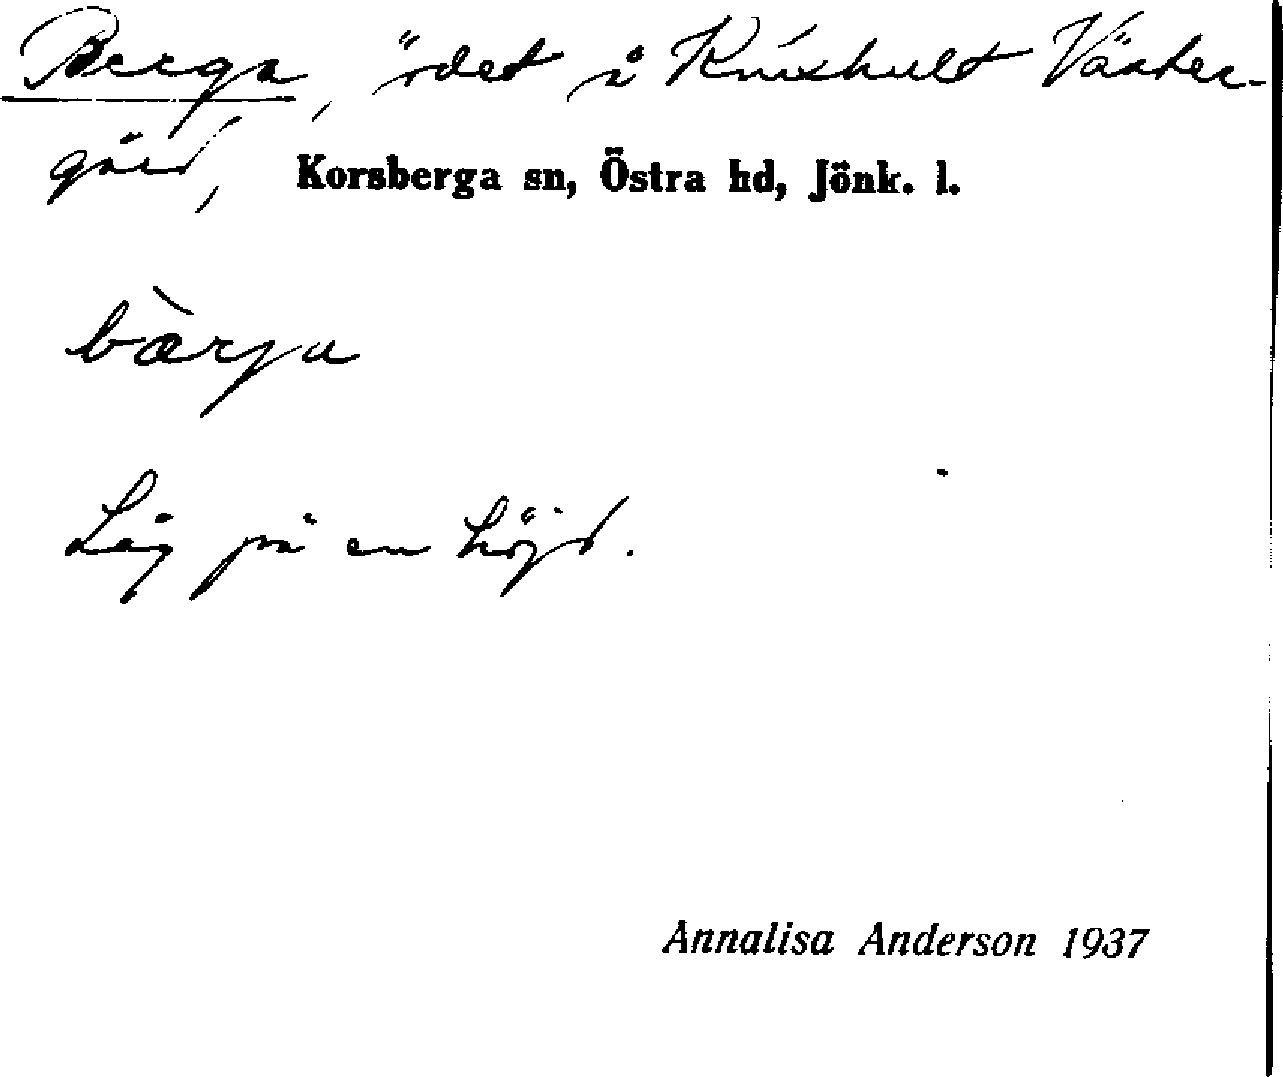 Berga, ödet å Knishult Väster-
gård, Korsberga sn, Östra hd, Jönk. l.
bæ̀rja
Låg på en höjd.
Annalisa Anderson 1937